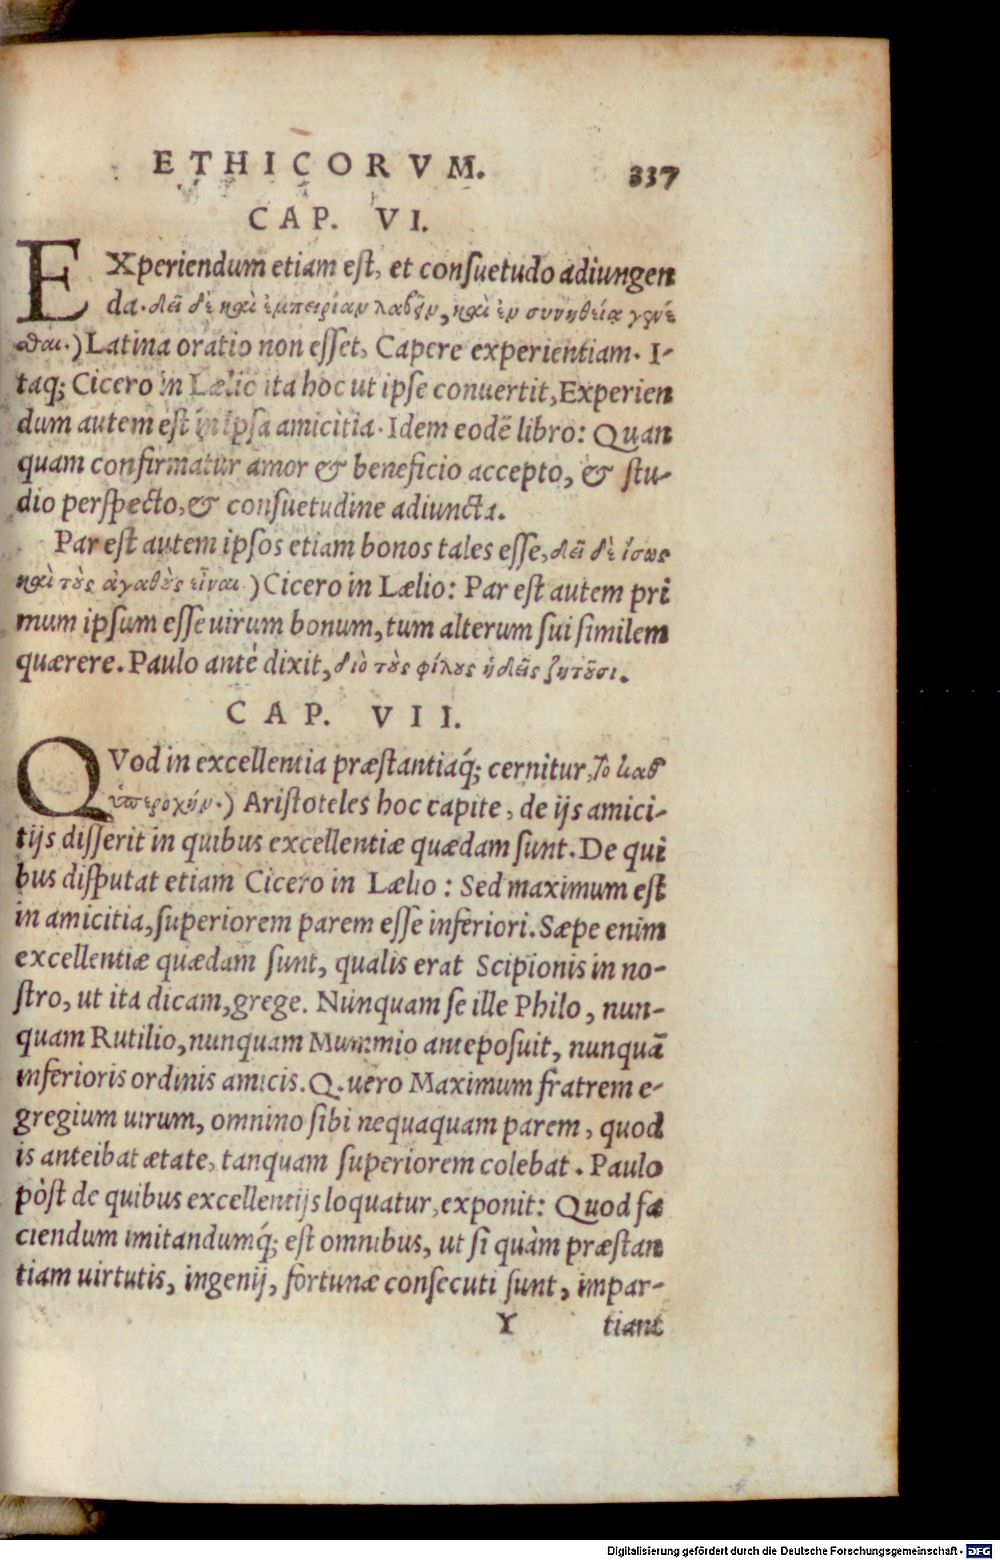 ETHICORVM. 337
CAP. VI.
EXperiendum etiam est, et consuetudo adiungen
da. δεῖ δὲ καὶ ἐμπειρίαν λαβεῖν, καὶ ἐν συνηθείᾳ γενέ
σθαι.) Latina oratio non esset, Capere experientiam. I-
taq; Cicero in Lælio ita hoc ut ipse conuertit, Experien
dum autem est in ipsa amicitia. Idem eodē libro: Quan
quam confirmatur amor & beneficio accepto, & stu-
dio perspecto, & consuetudine adiuncta.
Par est autem ipsos etiam bonos tales esse, δεῖ δὲ ἴσως
καὶ τοὺς ἀγαθοὺς εἶναι) Cicero in Lælio: Par est autem pri
mum ipsum esse uirum bonum, tum alterum sui similem
quærere. Paulo antè dixit, διὸ τοὺς φίλους ἡδεῖς ζητοῦσι.
CAP. VII.
QVod in excellentia præstantiaq́; cernitur, Τὸ καθ'
ὑπεροχήν.) Aristoteles hoc capite, de ijs amici-
tijs disserit in quibus excellentiæ quædam sunt. De qui
bus disputat etiam Cicero in Lælio: Sed maximum est
in amicitia, superiorem parem esse inferiori. Sæpe enim
excellentiæ quædam sunt, qualis erat Scipionis in no-
stro, ut ita dicam, grege. Nunquam se ille Philo, nun-
quam Rutilio, nunquam Mummio anteposuit, nunquā
inferioris ordinis amicis. Q. uero Maximum fratrem e-
gregium uirum, omnino sibi nequaquam parem, quod
is anteibat ætate, tanquam superiorem colebat. Paulo
pòst de quibus excellentijs loquatur, exponit: Quod fa
ciendum imitandumq́; est omnibus, ut si quàm præstan
tiam uirtutis, ingenij, fortunæ consecuti sunt, impar-
Y tiant
Digitalisierung gefördert durch die Deutsche Forschungsgemeinschaft - DFG